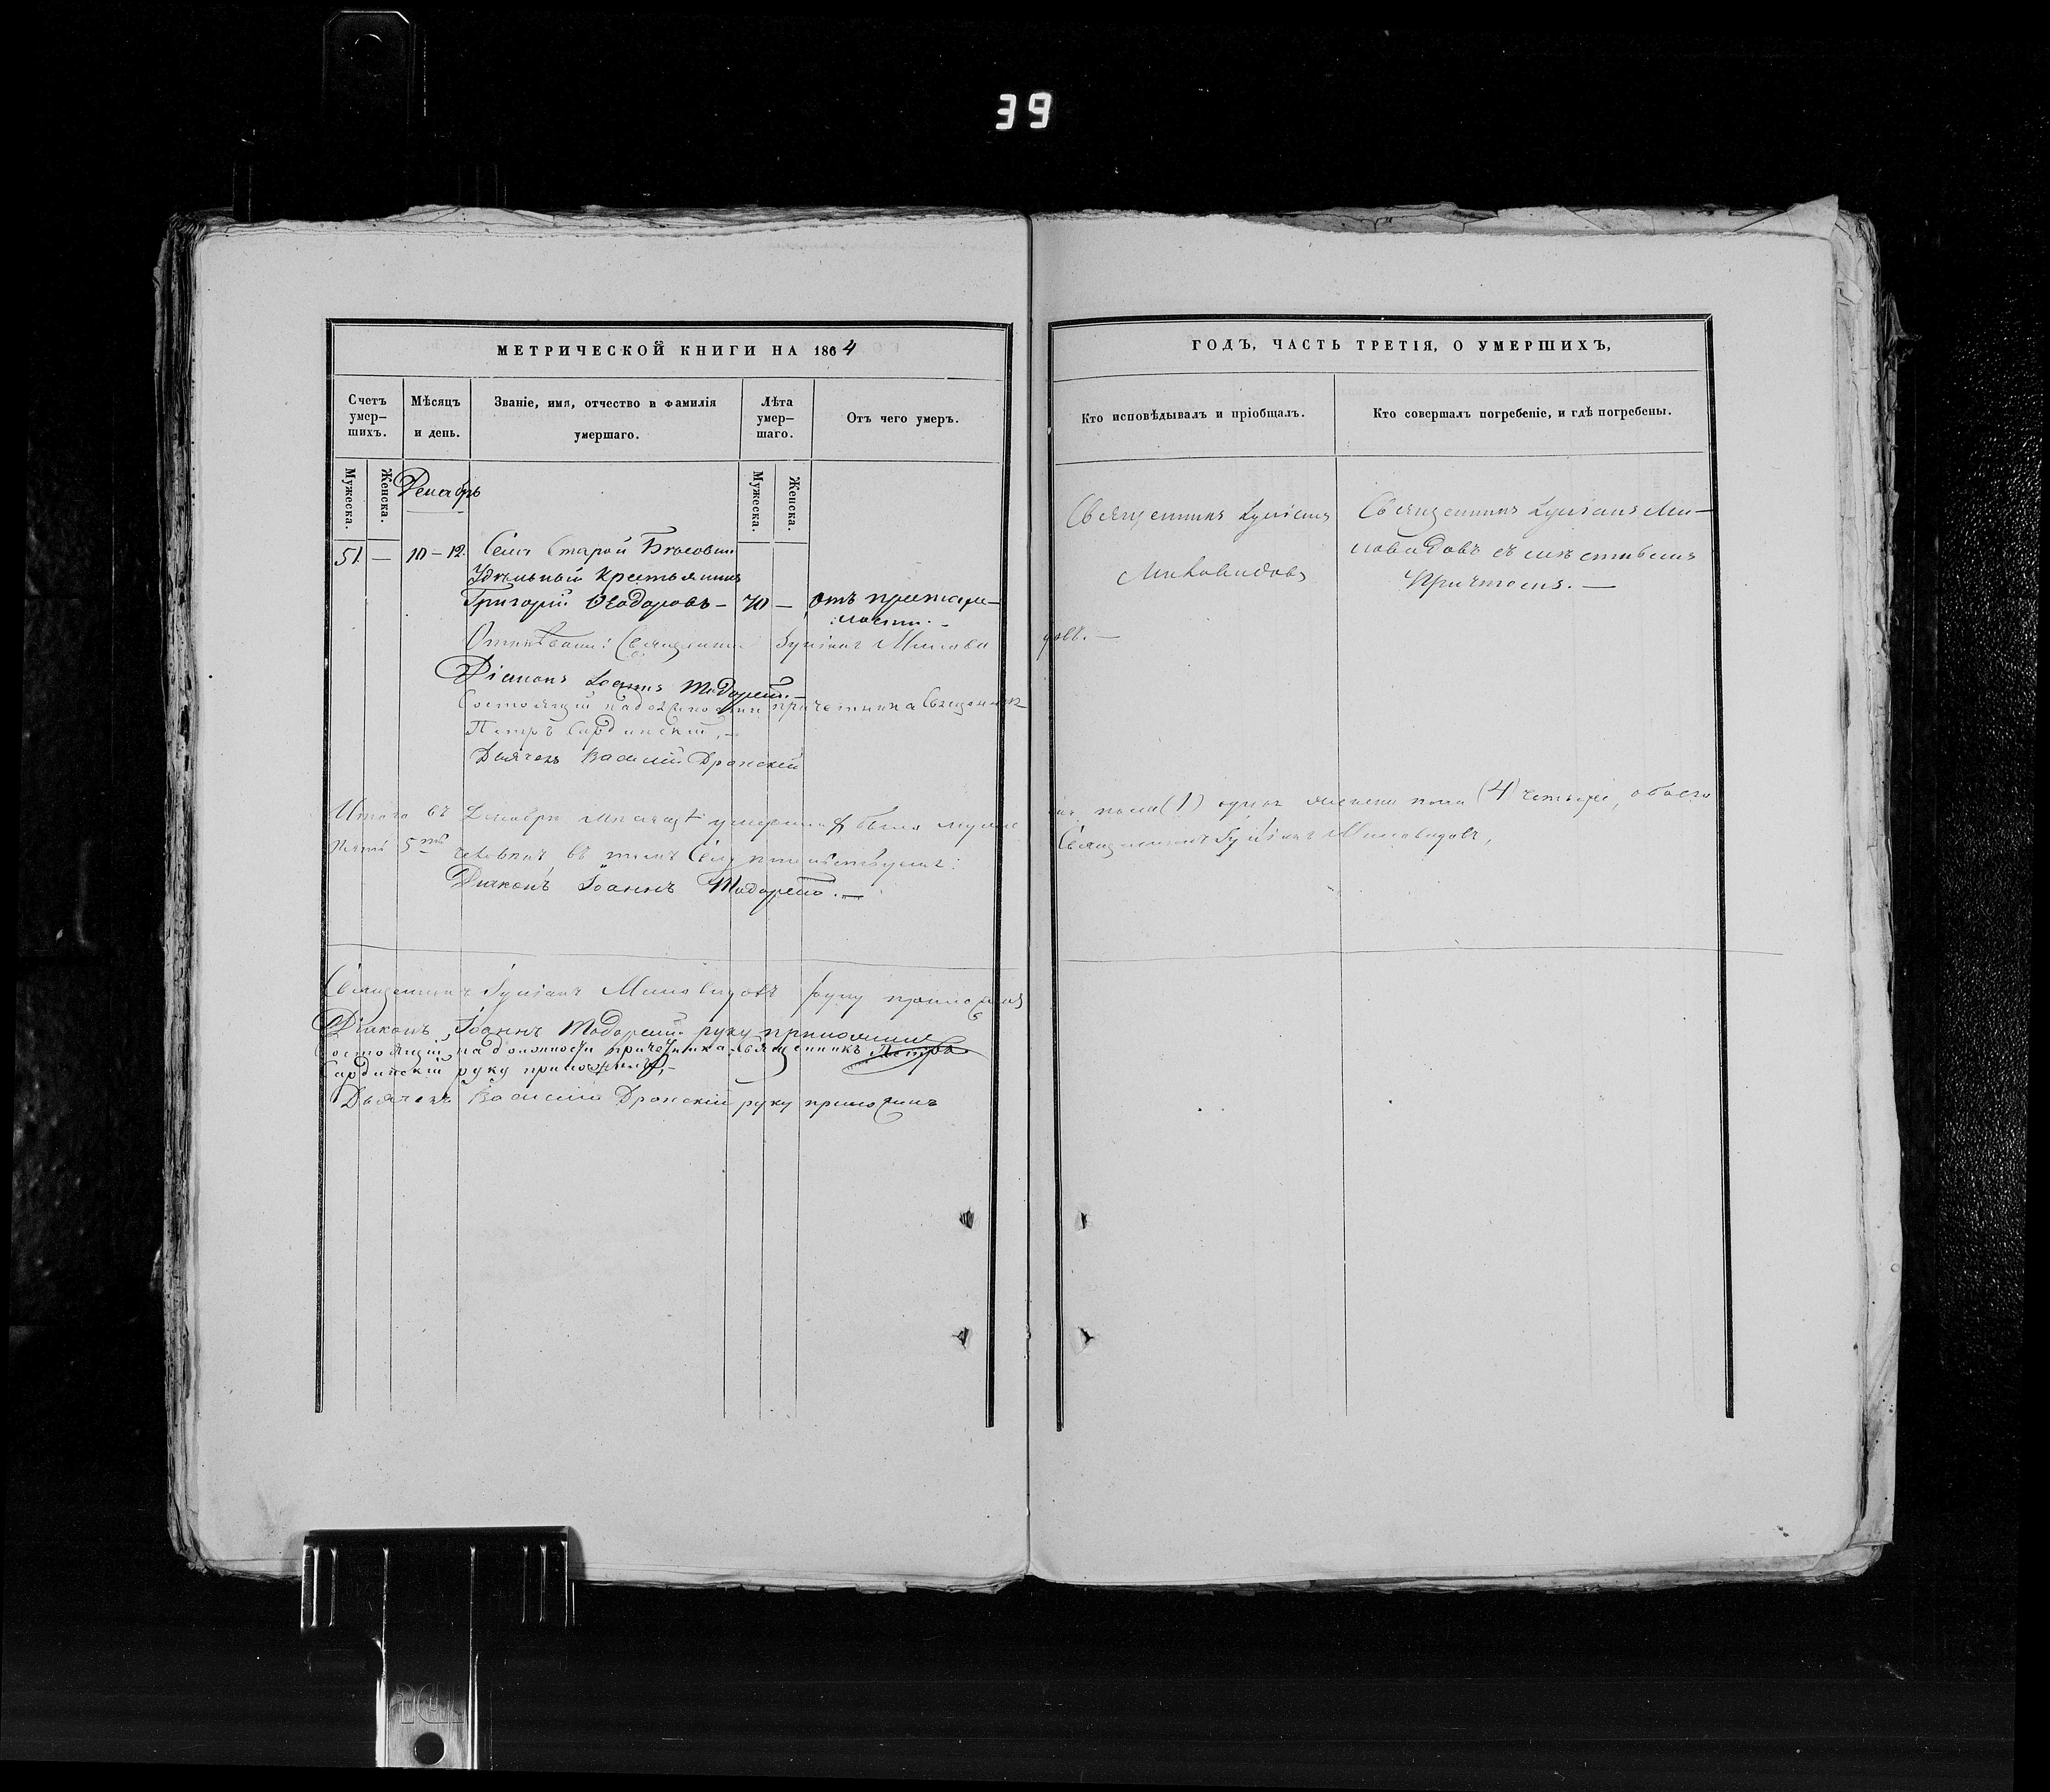 39
МЕТРИЧЕСКОЙ КНИГИ НА 1864
Счетъ умер-шихъ.
Мѣсяцъ и день.
Званіе, имя, отчество и фамилія умершаго.
Лѣта умер-шаго.
Отъ чего умеръ.
Мужеска.
Женска.
Декабрь
Мужеска.
Женска.
51. — 10 – 12. Села Старой
Удѣльный Крестьянинъ
Григорій Ѳеодоровъ – 70 – отъ престаре-
лости. –
Отпѣвали: Священникъ Лукіанъ Милови
Діаконъ Іоаннъ
Состоящій на должности причетника Священникъ
Петръ Сардинскій, –
Дьячекъ Василій Дронскій
Итого въ Декабрѣ мѣсяцѣ умершихъ было муже
пять 5 человѣкъ, въ томъ
Діаконъ Іоаннъ
Священникъ Лукіанъ Миловидовъ руку приложилъ
Діаконъ Іоаннъ руку приложилъ
Состоящій на должности причетника Священникъ Петръ
Сардинскій руку приложилъ, –
Дьячекъ Василій Дронскій руку приложилъ
ГОДЪ, ЧАСТЬ ТРЕТІЯ, О УМЕРШИХЪ,
Кто исповѣдывалъ и пріобщалъ.
Кто совершалъ погребеніе, и гдѣ погребены.
Священникъ Лукіанъ
Миловидовъ
Священникъ Лукіанъ Ми-
ловидовъ съ
Причтомъ. —
довъ. —
пола (1) одинъ женска пола (4) четыре, обоего
Священникъ Лукіанъ Миловидовъ,